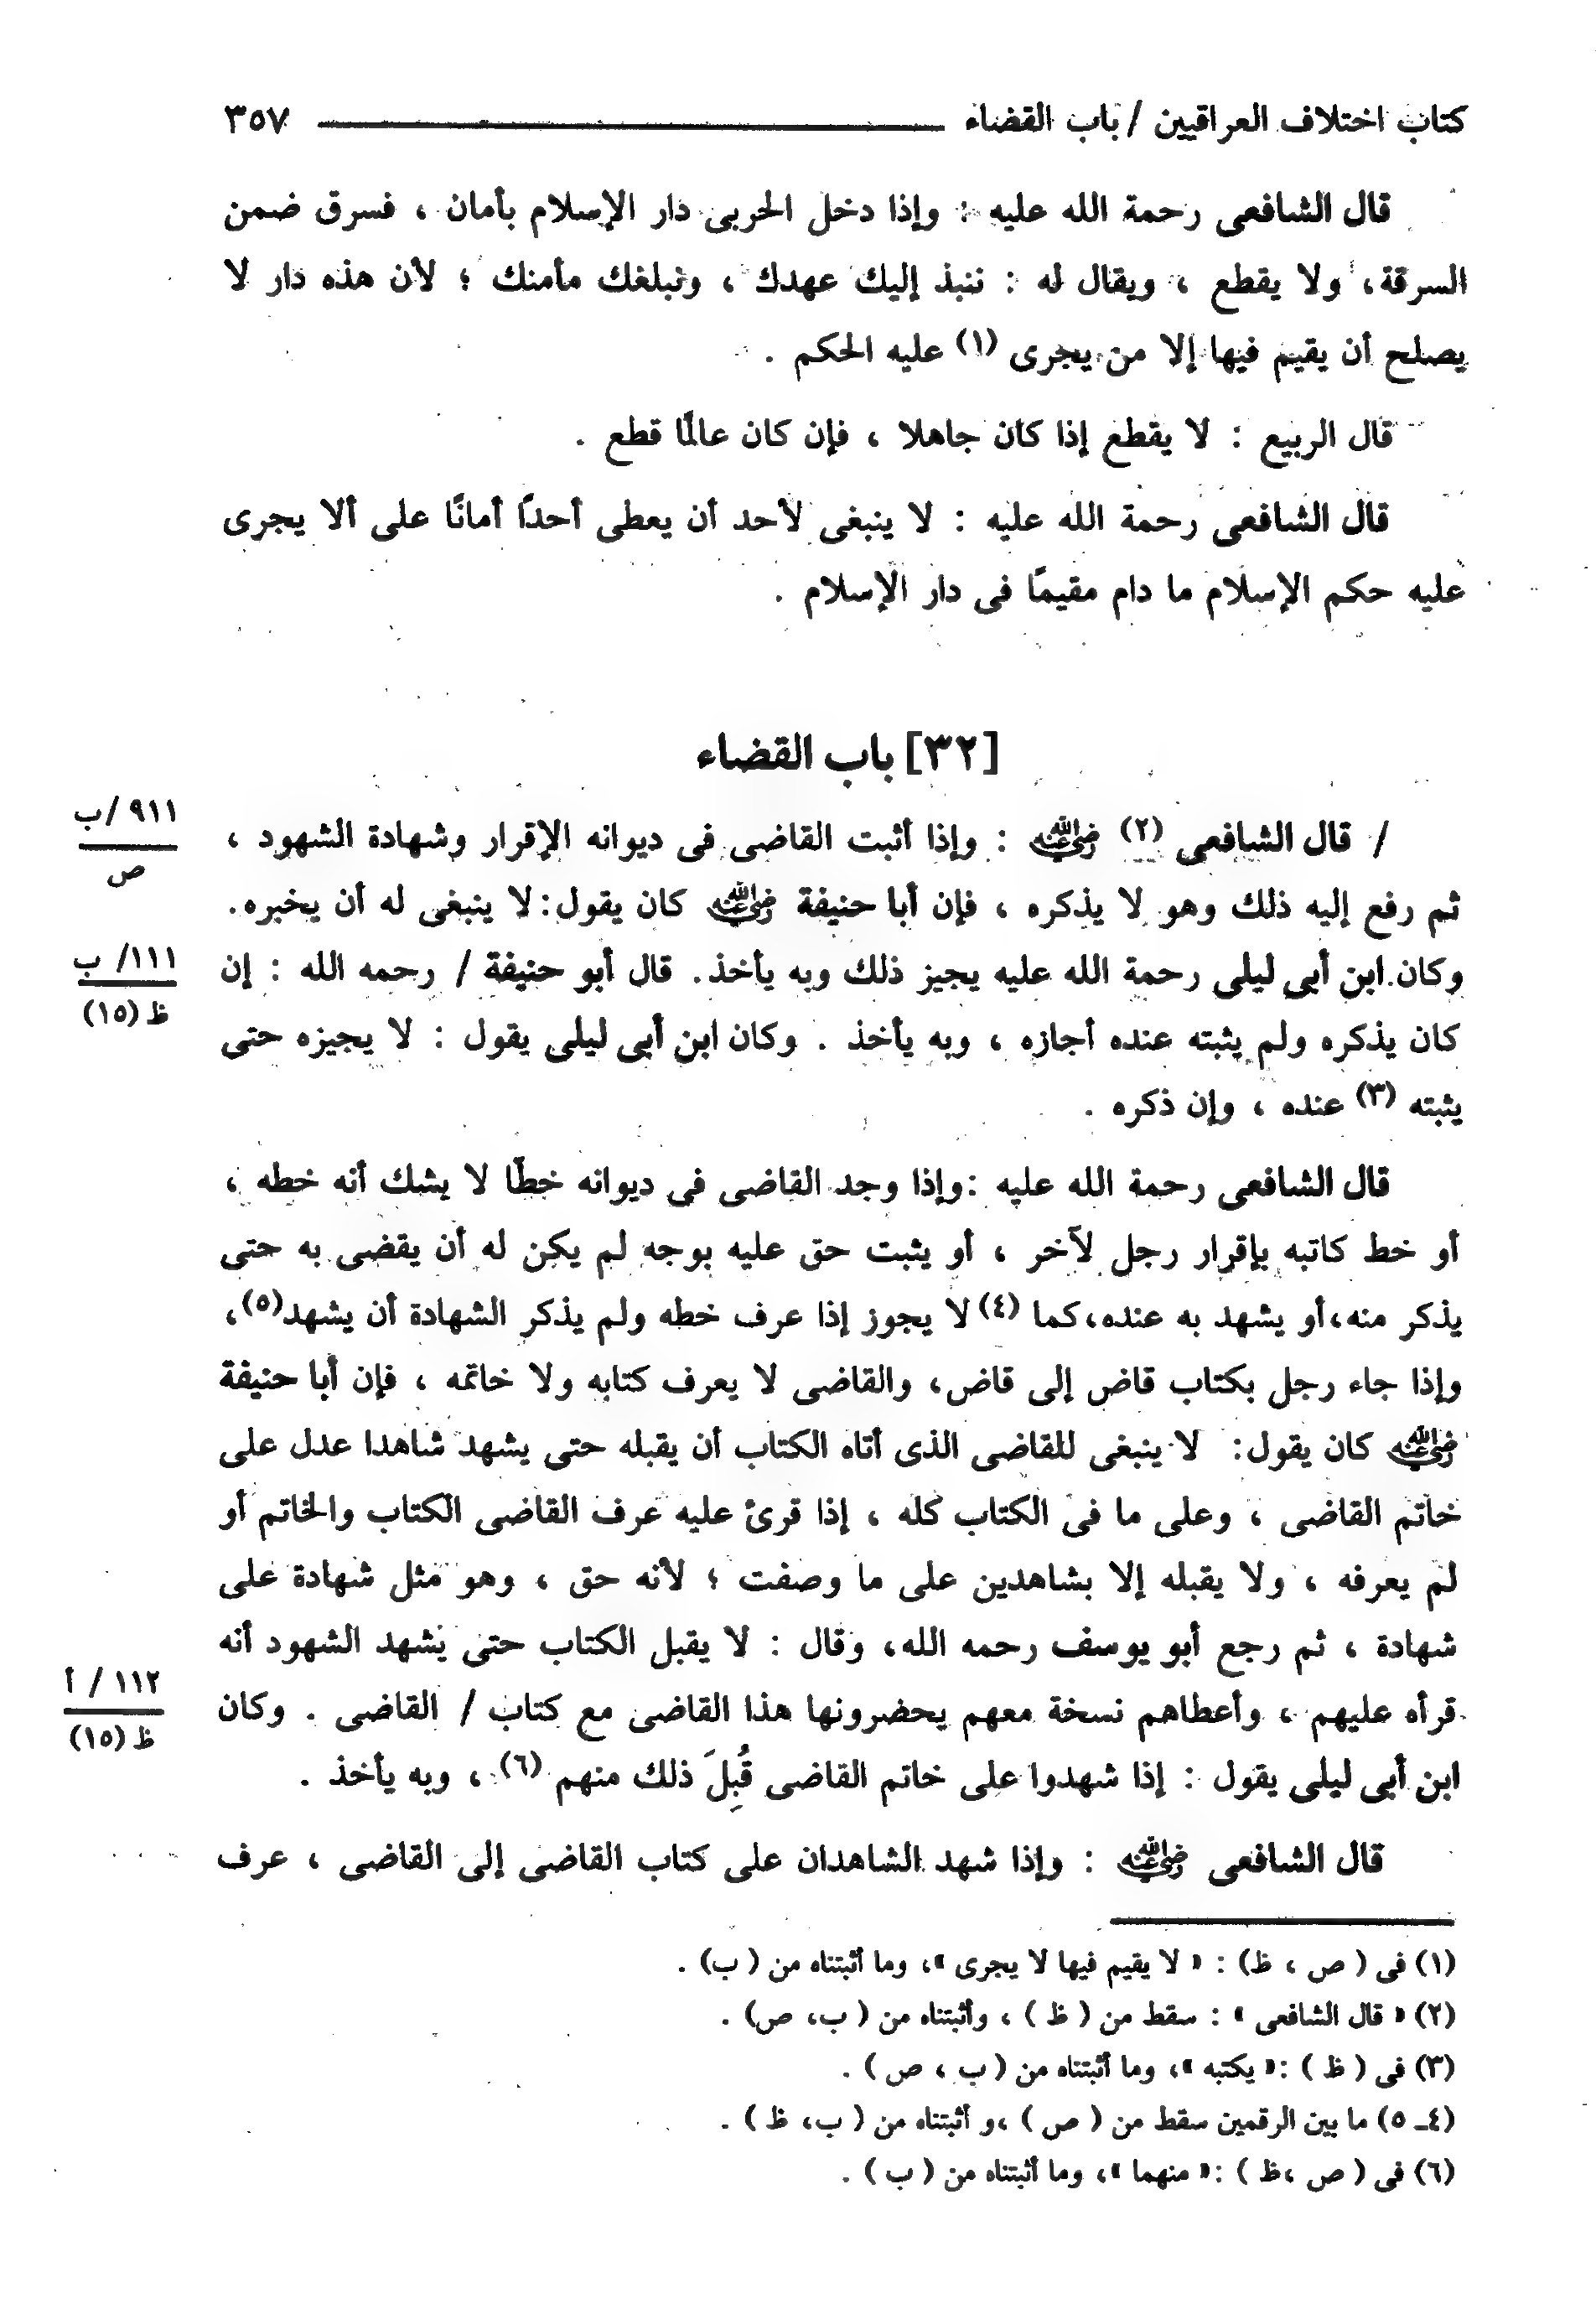 كتاب اختلاف العراقيين / باب القضاء ٣٥٧
قال الشافعى رحمة الله عليه : وإذا دخل الحربى دار الإسلام بأمان ، فسرق ضمن
السرقة، ولا يقطع ، ويقال له : ننبذ إليك عهدك ، ونبلغك مأمنك ؛ لأن هذه دار لا
يصلح أن يقيم فيها إلا من يجرى (١) عليه الحكم .
قال الربيع : لا يقطع إذا كان جاهلا ، فإن كان عالمًا قطع .
قال الشافعى رحمة الله عليه : لا ينبغى لأحد أن يعطى أحدًا أمانًا على ألا يجرى
عليه حكم الإسلام ما دام مقيمًا فى دار الإسلام .
[٣٢] باب القضاء
/ قال الشافعى (٢) رضي الله عنه : وإذا أثبت القاضى فى ديوانه الإقرار وشهادة الشهود ،
٩١١ /ب
ص
ثم رفع إليه ذلك وهو لا يذكره ، فإن أبا حنيفة رضي الله عنه كان يقول: لا ينبغى له أن يخبره.
وكان ابن أبى ليلى رحمة الله عليه يجيز ذلك وبه يأخذ. قال أبو حنيفة / رحمه الله : إن
١١١/ ب
ظ (١٥)
كان يذكره ولم يثبته عنده أجازه ، وبه يأخذ . وكان ابن أبى ليلى يقول : لا يجيزه حتى
يثبته (٣) عنده ، وإن ذكره .
قال الشافعى رحمة الله عليه :وإذا وجد القاضى فى ديوانه خطًا لا يشك أنه خطه ،
أو خط كاتبه بإقرار رجل لآخر ، أو يثبت حق عليه بوجه لم يكن له أن يقضى به حتى
يذكر منه،أو يشهد به عنده،كما (٤) لا يجوز إذا عرف خطه ولم يذكر الشهادة أن يشهد(٥)،
وإذا جاء رجل بكتاب قاض إلى قاض، والقاضى لا يعرف كتابه ولا خاتمه ، فإن أبا حنيفة
رضي الله عنه كان يقول: لا ينبغى للقاضى الذى أتاه الكتاب أن يقبله حتى يشهد شاهدا عدل على
خاتم القاضى ، وعلى ما فى الكتاب كله ، إذا قرئ عليه عرف القاضى الكتاب والخاتم أو
لم يعرفه ، ولا يقبله إلا بشاهدين على ما وصفت ؛ لأنه حق ، وهو مثل شهادة على
شهادة ، ثم رجع أبو يوسف رحمه الله، وقال : لا يقبل الكتاب حتى يشهد الشهود أنه
قرأه عليهم ، وأعطاهم نسخة معهم يحضرونها هذا القاضى مع كتاب / القاضى . وكان
١١٢ / أ
ظ (١٥)
ابن أبى ليلى يقول : إذا شهدوا على خاتم القاضى قُبِلَ ذلك منهم (٦) ، وبه يأخذ .
قال الشافعى رضي الله عنه : وإذا شهد الشاهدان على كتاب القاضى إلى القاضى ، عرف
(١) فى ( ص ، ظ) : « لا يقيم فيها لا يجرى »، وما أثبتناه من ( ب) .
(٢) « قال الشافعى » : سقط من ( ظ ) ، وأثبتناه من ( ب، ص) .
(٣) فى ( ظ ) :« يكتبه »، وما أثبتناه من ( ب ، ص ) .
(٤ـ ٥) ما بين الرقمين سقط من ( ص ) ،و أثبتناه من ( ب، ظ ) .
(٦) فى ( ص ،ظ ) :« منهما »، وما أثبتناه من ( ب ) .